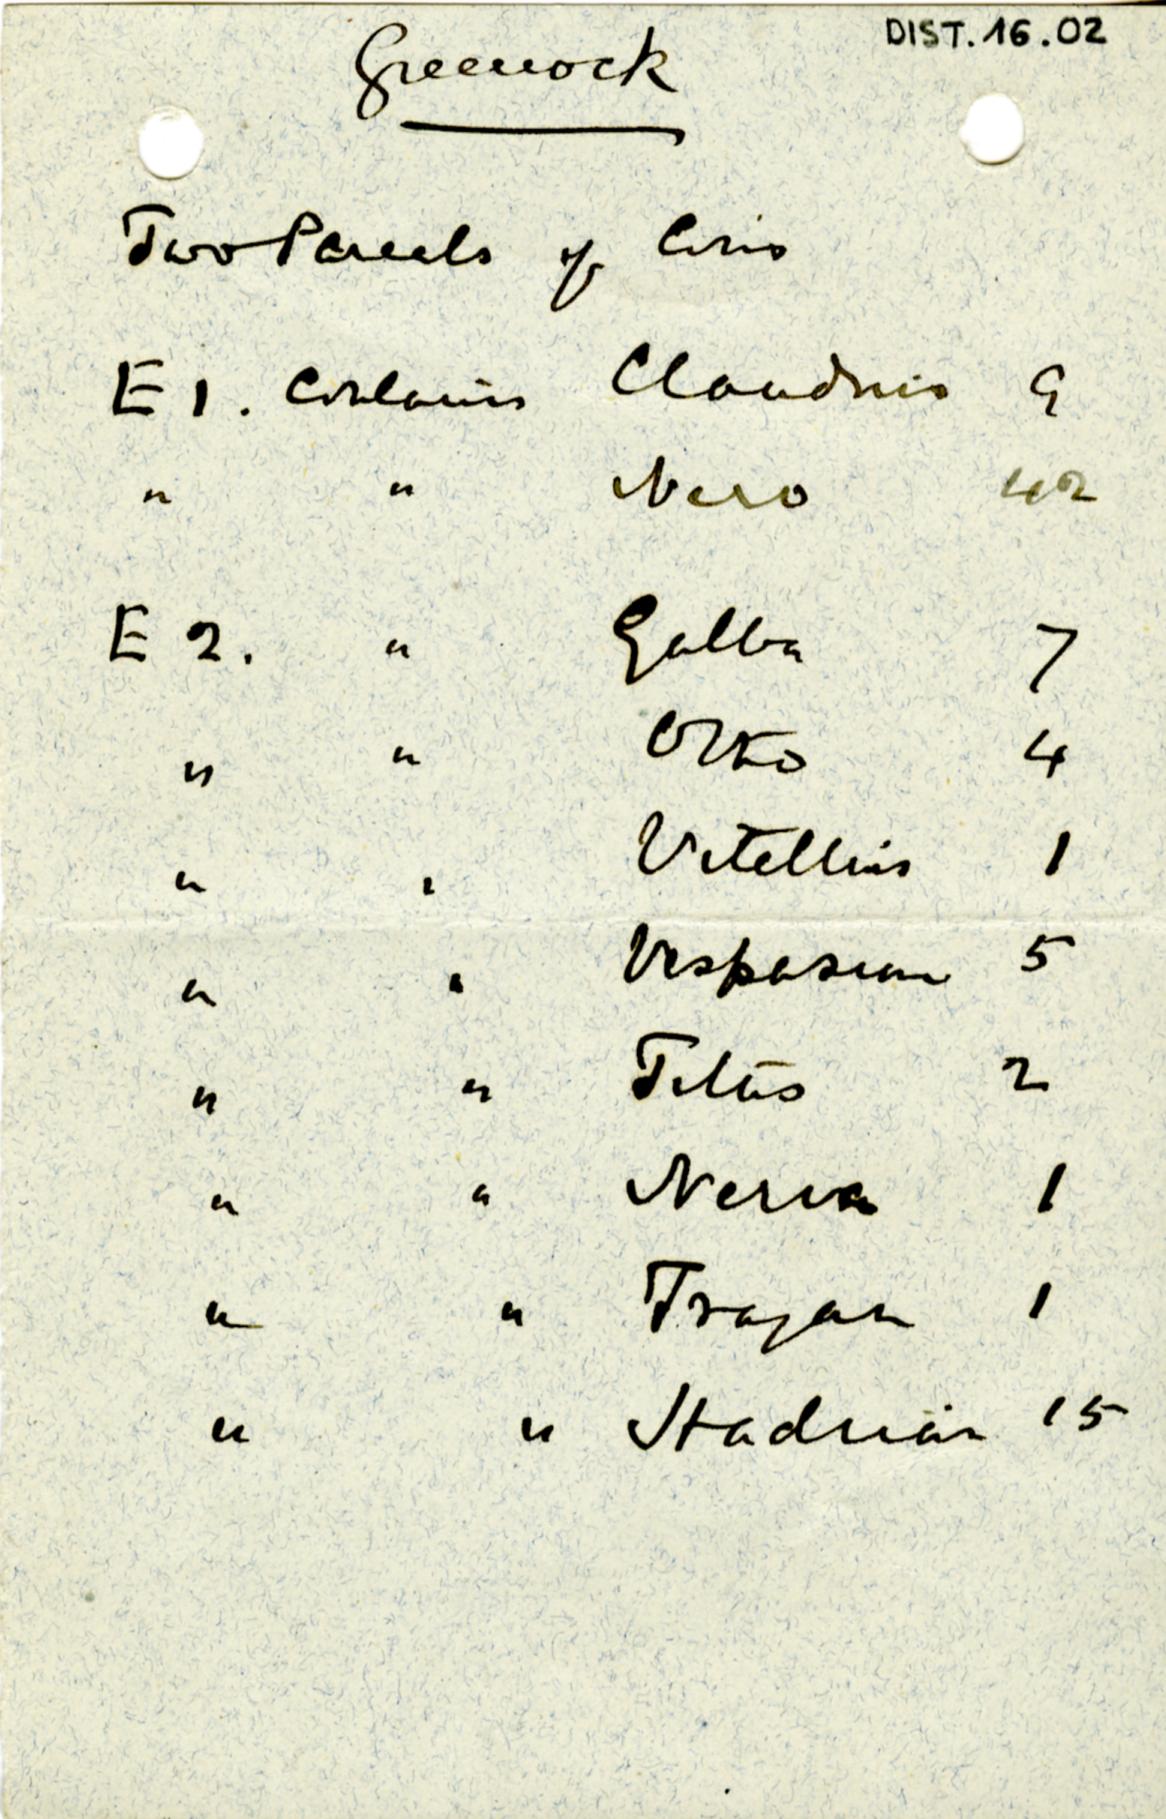 DIST.16.02
Greenock
Two Parcels of Coins
E 1. Contains Claudius 9
" " Nero 42
E 2. " Galba 7
" " Otho 4
" " Vitellius 1
" " Vespasian 5
" " Titus 2
" " Nerva 1
" " Trajan 1
" " Hadrian 15